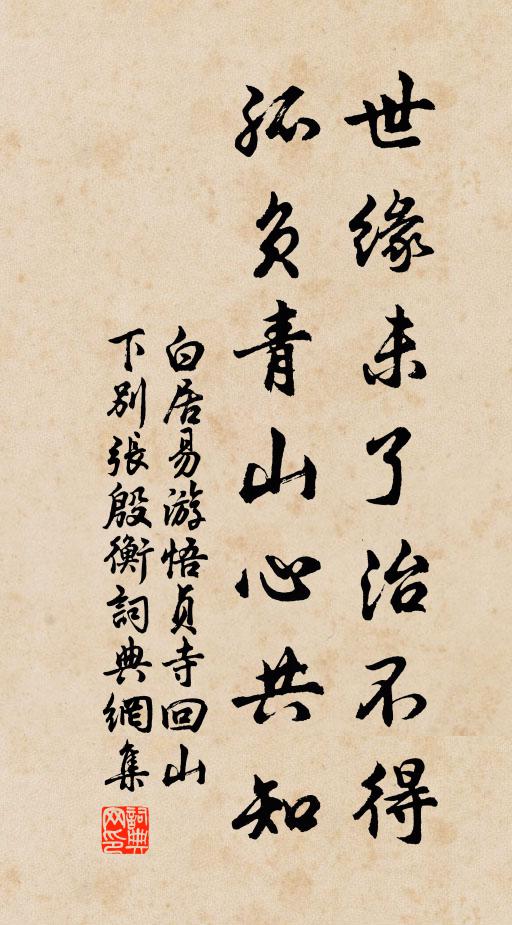 世缘未了治不得
孤负青山心共知
白居易游悟贞寺回山
下别张殷衡詞典網集
詞典网印